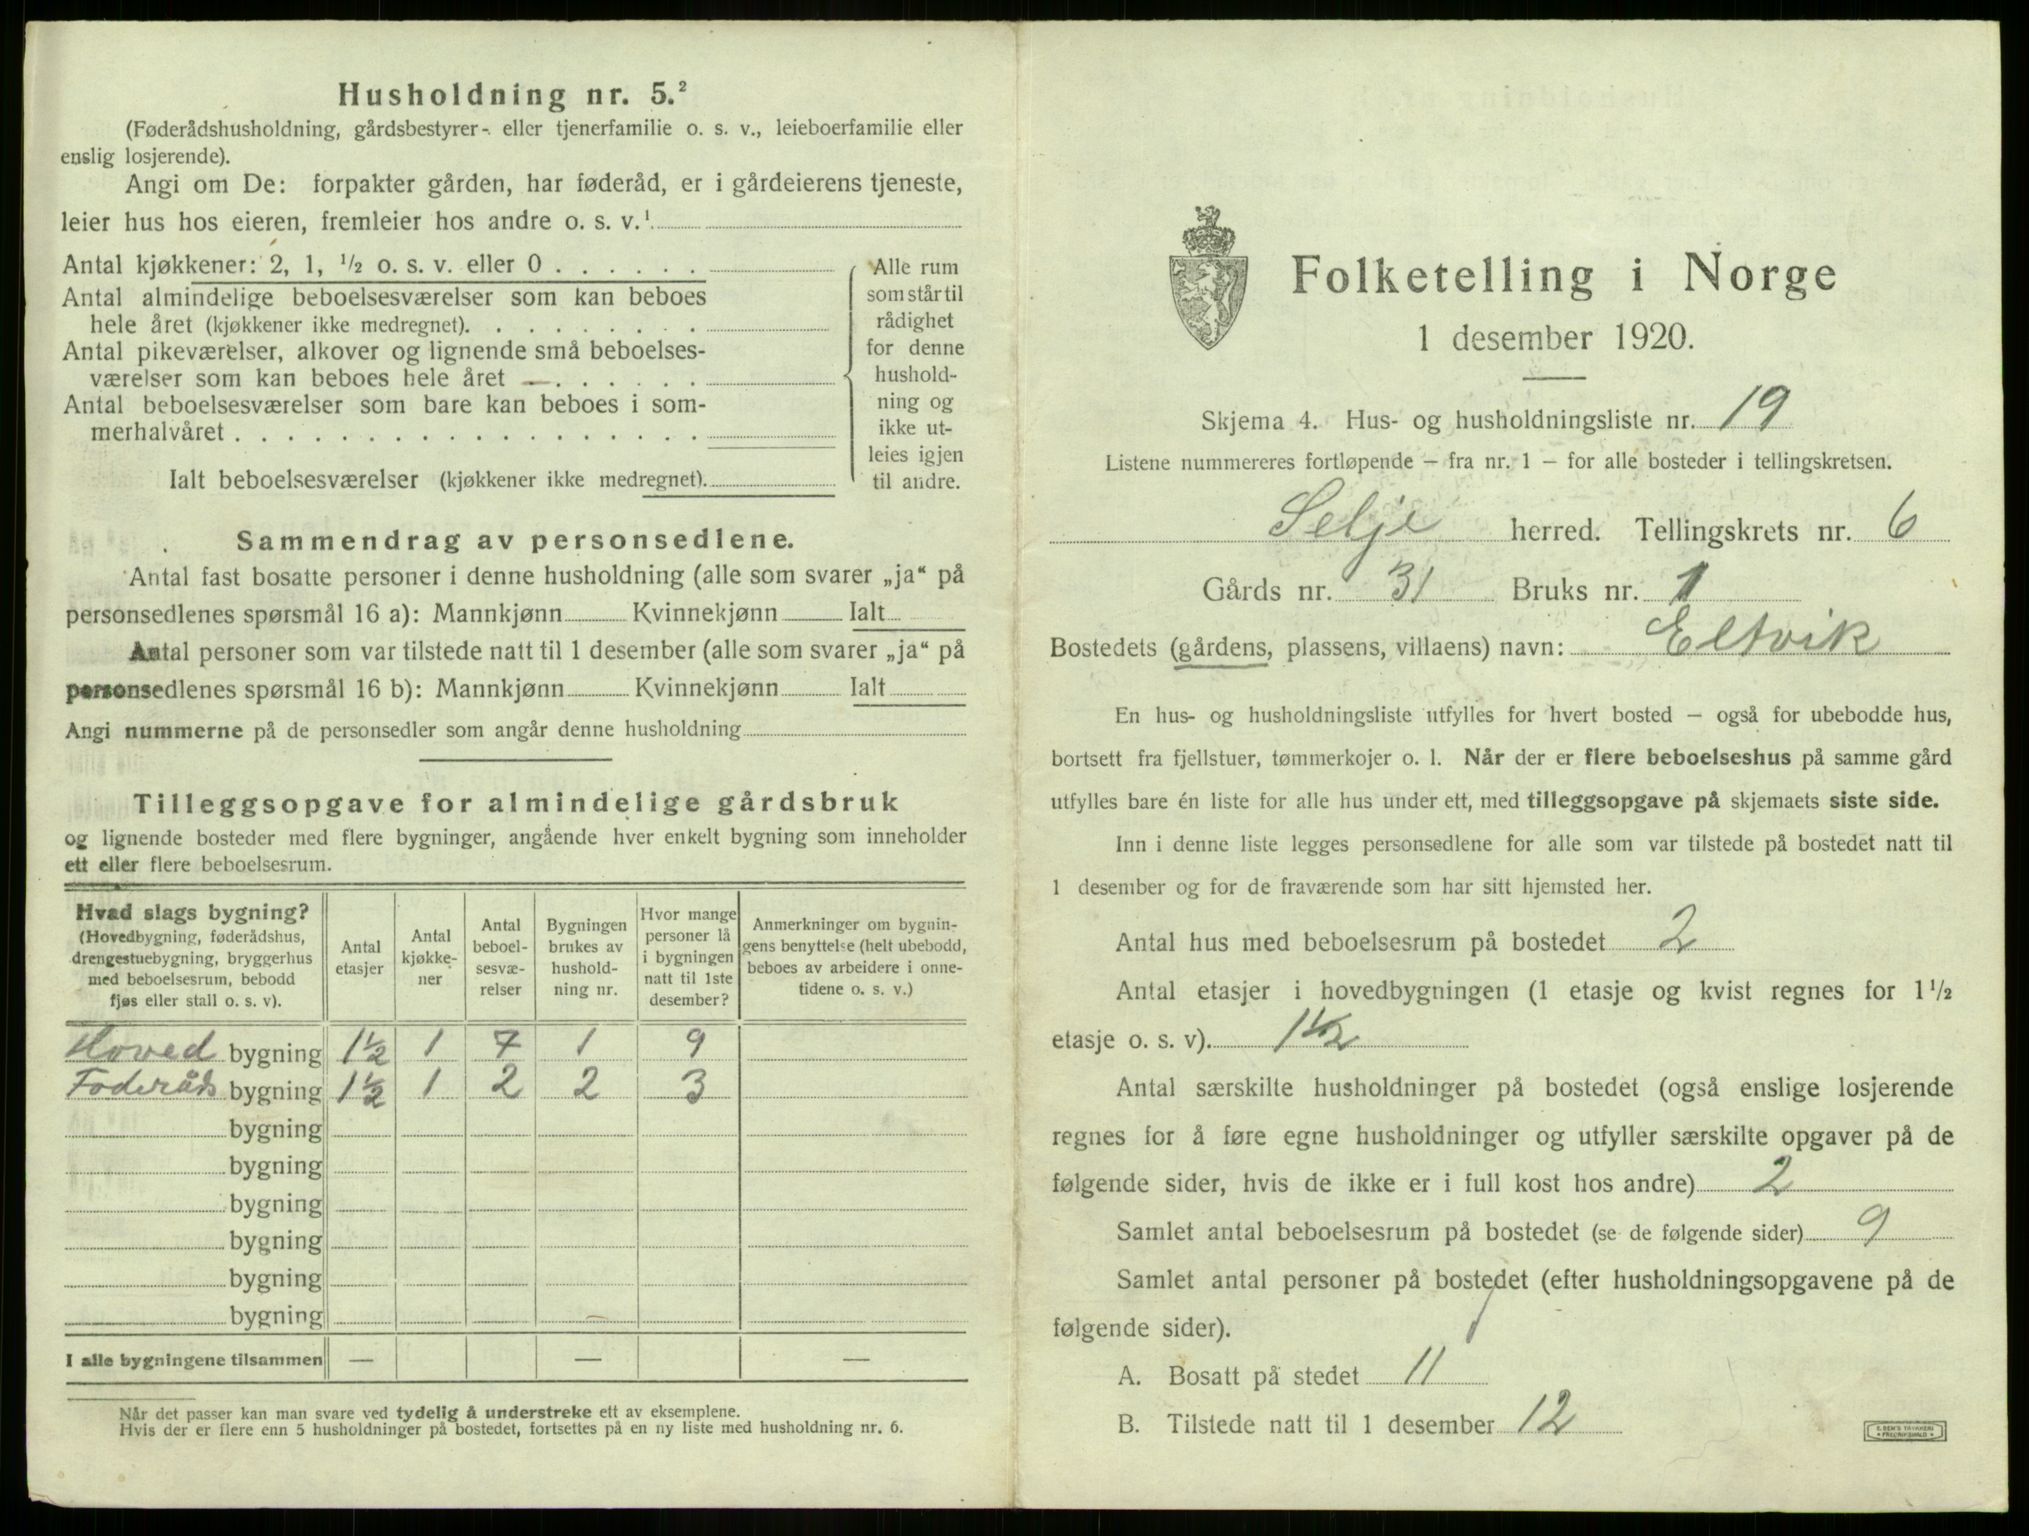 Husholdning nr. 5.²
(Føderådshusholdning, gårdsbestyrer- eller tjenerfamilie o. s. v., leieboerfamilie eller
enslig losjerende).
Angi om De: forpakter gården, har føderåd, er i gårdeierens tjeneste,
leier hus hos eieren, fremleier hos andre o. s. v.¹
Antal kjøkkener: 2, 1, ½ o. s. v. eller 0 . . . . . .
Antal almindelige beboelsesværelser som kan beboes
hele året (kjøkkener ikke medregnet). . . . . . . . .
Antal pikeværelser, alkover og lignende små beboelses-
værelser som kan beboes hele året . . . . . . .
Antal beboelsesværelser som bare kan beboes i som-
merhalvåret . . . . . . . . . . . . . . . . . .
Ialt beboelsesværelser (kjøkkener ikke medregnet).
Alle rum
som står til
rådighet
for denne
hushold-
ning og
ikke ut-
leies igjen
til andre.
Sammendrag av personsedlene.
Antal fast bosatte personer i denne husholdning (alle som svarer „ja“ på
personsedlenes spørsmål 16 a): Mannkjønn Kvinnekjønn Ialt
Antal personer som var tilstede natt til 1 desember (alle som svarer „ja“ på
personsedlenes spørsmål 16 b): Mannkjønn Kvinnekjønn Ialt
Angi nummerne på de personsedler som angår denne husholdning
Tilleggsopgave for almindelige gårdsbruk
og lignende bosteder med flere bygninger, angående hver enkelt bygning som inneholder
ett eller flere beboelsesrum.
Hvad slags bygning?
(Hovedbygning, føderådshus,
drengestuebygning, bryggerhus
med beboelsesrum, bebodd
fjøs eller stall o. s. v).
Antal
etasjer
Antal
kjøkke-
ner
Antal
beboel-
sesvæ-
relser
Bygningen
brukes av
hushold-
ning nr.
Hvor mange
personer lå
i bygningen
natt til 1ste
desember?
Anmerkninger om bygnin-
gens benyttelse (helt ubebodd,
beboes av arbeidere i onne-
tidene o. s. v.)
Hoved bygning 1½ 1 7 1 9
Foderåds bygning 1½ 1 2 2 3
bygning
bygning
bygning
bygning
bygning
bygning
I alle bygningene tilsammen — — —
Når det passer kan man svare ved tydelig å understreke ett av eksemplene.
Hvis der er flere enn 5 husholdninger på bostedet, fortsettes på en ny liste med husholdning nr. 6.
Folketelling i Norge
1 desember 1920.
Skjema 4. Hus- og husholdningsliste nr. 19
Listene nummereres fortløpende – fra nr. 1 – for alle bosteder i tellingskretsen.
Selje herred. Tellingskrets nr. 6
Gårds nr. 31 Bruks nr. 1
Bostedets (gårdens, plassens, villaens) navn: Eltvik
En hus- og husholdningsliste utfylles for hvert bosted – også for ubebodde hus,
bortsett fra fjellstuer, tømmerkojer o. l. Når der er flere beboelseshus på samme gård
utfylles bare én liste for alle hus under ett, med tilleggsopgave på skjemaets siste side.
Inn i denne liste legges personsedlene for alle som var tilstede på bostedet natt til
1 desember og for de fraværende som har sitt hjemsted her.
Antal hus med beboelsesrum på bostedet 2
Antal etasjer i hovedbygningen (1 etasje og kvist regnes for 1½
etasje o. s. v). 1½
Antal særskilte husholdninger på bostedet (også enslige losjerende
regnes for å føre egne husholdninger og utfyller særskilte opgaver på de
følgende sider, hvis de ikke er i full kost hos andre) 2
Samlet antal beboelsesrum på bostedet (se de følgende sider) 9
Samlet antal personer på bostedet (efter husholdningsopgavene på de
følgende sider).
A. Bosatt på stedet 11
B. Tilstede natt til 1 desember 12